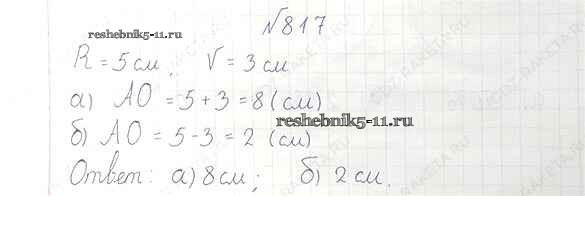 №817
reshebnik5-11.ru
R = 5 см, V = 3 см
а) АО = 5 + 3 = 8 (см)
reshebnik5-11.ru
б) АО = 5 - 3 = 2 (см)
Ответ: а) 8 см; б) 2 см.